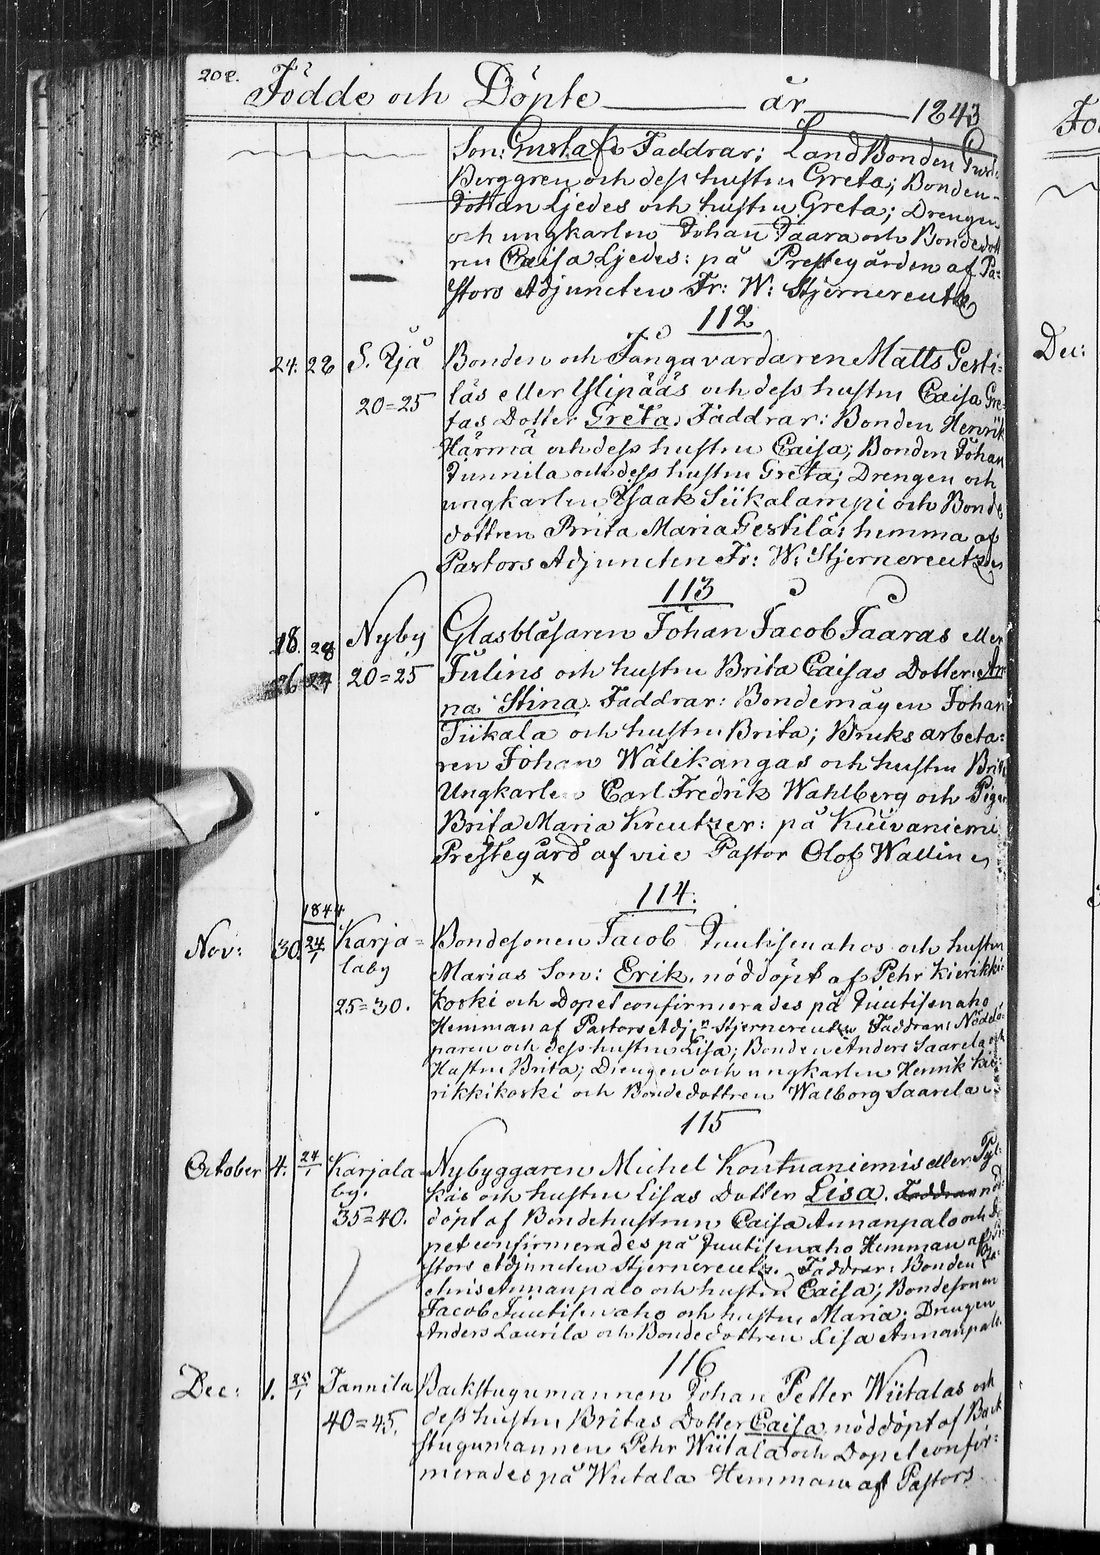 202.
Födde och Döpte år 1843
Son: Gustaf. Faddrar: Landbonden
Berggren och dess hustru Greta; Bonden
Johan Ljedes och hustru Greta; Drengen
och ungkarlen Johan Taara och Bondedott
ren Caisa Ljedes: på Prestegården af Pa-
stors Adjuncten Fr: W: Stjernereutz
112
24. 28 S. Ijå Bonden och Fångavardaren Matts Gesti-
20=25 läs eller Ylipääs och dess hustru Caisa Gre-
tas Dotter Greta. Faddrar: Bonden Henrik
Härmä och dess hustru Caisa; Bonden Johan
Junnila och dess hustru Greta; Drengen och
ungkarlen Isaak Siikalampi och Bonde
dottren Brita Maria Gestilä: hemma af
Pastors Adjuncten Fr: W: Stjernereutz
113
18. 28 Nyby Glasblåsaren Johan Jacob Taaras eller
26 27 20=25 Julins och hustru Brita Caisas Dotter: An
na Stina. Faddrar: Bondemågen Johan
Tiikala och hustru Brita; Bruks arbeta=
ren Johan Wälikangas och hustru Brita
Ungkarlen Carl Fredrik Wahlberg och Pigan
Brita Maria Kreutzer: på Kuivaniemi
Prestegård af vice Pastor Olof Wallin
114.
1844
Nov: 30. 24/1 Karja= Bondesonen Jacob Juutisenahos och hustru
laby Marias Son: Erik. nöddöpt af Pehr Kierikki-
25=30. koski och Dopet confirmerades på Juutisenaho
Hemman af Pastors Adj:n Stjernereutz. Faddrar: Nöddö-
paren och dess hustru Lisa; Bonden Anders Saarela och
Hustru Brita; Drengen och ungkarlen Henrik Kie-
rikkikoski och Bondedottren Walborg Saarela
115
October 4. 24/1 Karjala= Nybyggaren Michel Kontuaniemis eller
by. och hustru Lisas Dotter Lisa.
35=40. döpt af Bondehustrun Caisa Annanpalo och Do
pet confirmerades på Juutisenaho Hemman af Pa
stors Adjuncten Stjernereutz. Faddrar: Bonden
Annanpalo och hustru Caisa; Bondesonen
Jacob Juutisenaho och hustru Maria; Drengen
Anders Laurila och Bondedottren Lisa Annanpalo.
116
Dec: 1. 25/1 Jannila Backstugumannen Johan Petter Wiitalas och
40=45. dess hustru Britas Dotter Caisa nöddöpt af Back
stugumannen Pehr Wiitala och Dopet confir=
merades på Wiitala Hemman af Pastors